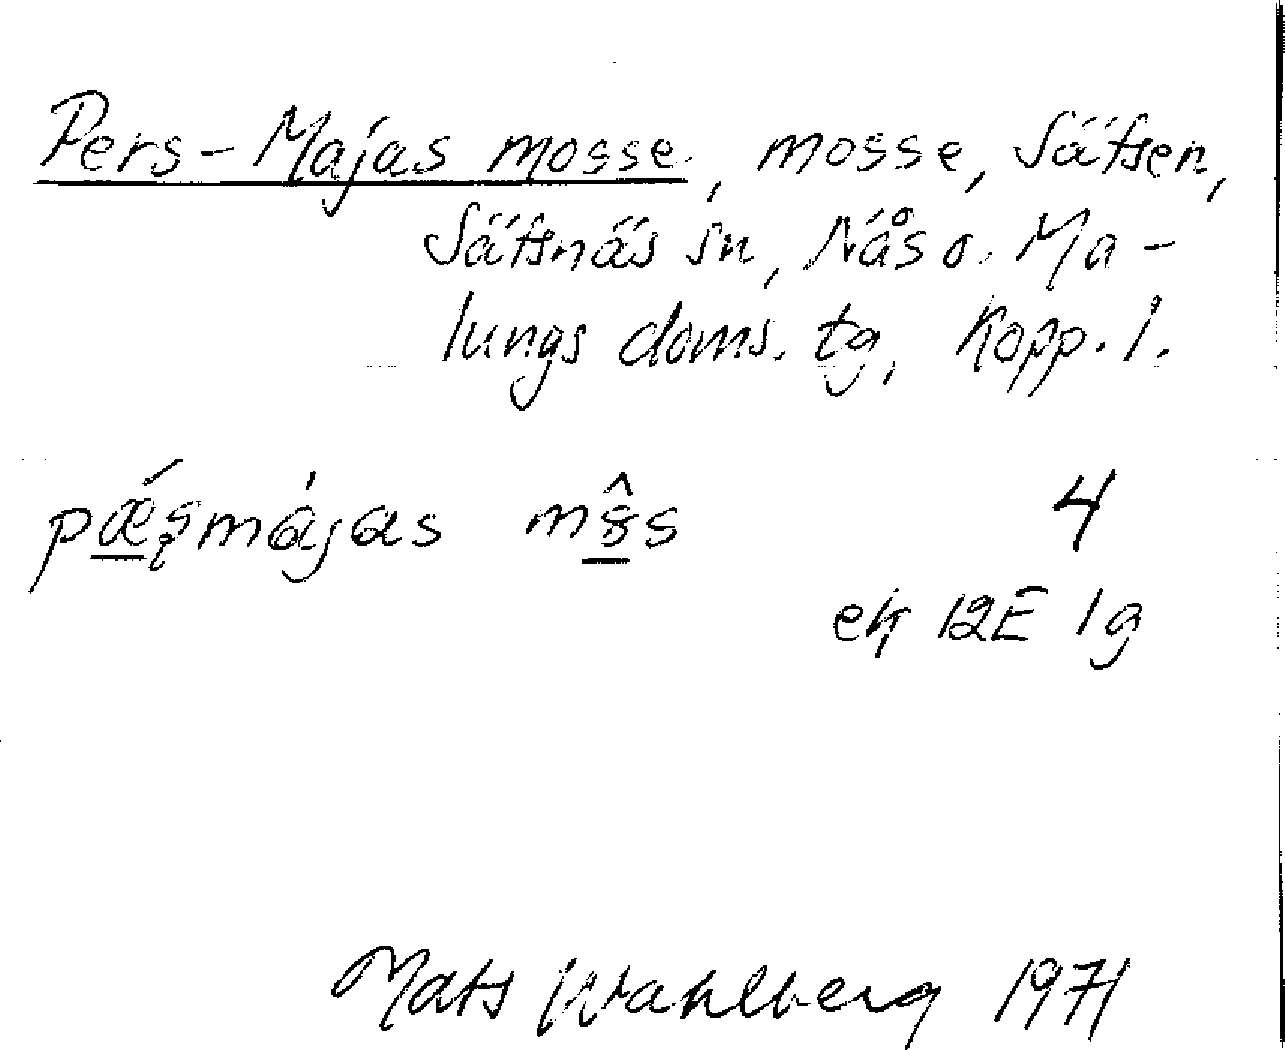 Pers-Majas mosse, mosse, Sätsen,
Sätsnäs sn, Nås o. Ma-
lungs doms. tg, Kopp. l.
4
ek 12E 1g
Mats Wahlberg 1971